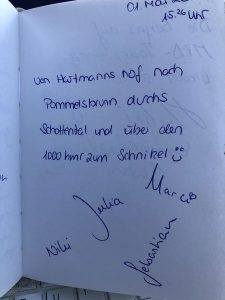 01. Mai 20
15.26 Uhr
von Hartmanns hof nach
Pommelsbrunn durchs
Schottental und übe den
1000 hmr zum Schnitzel
Marco
Julia
Niki
Sebastian